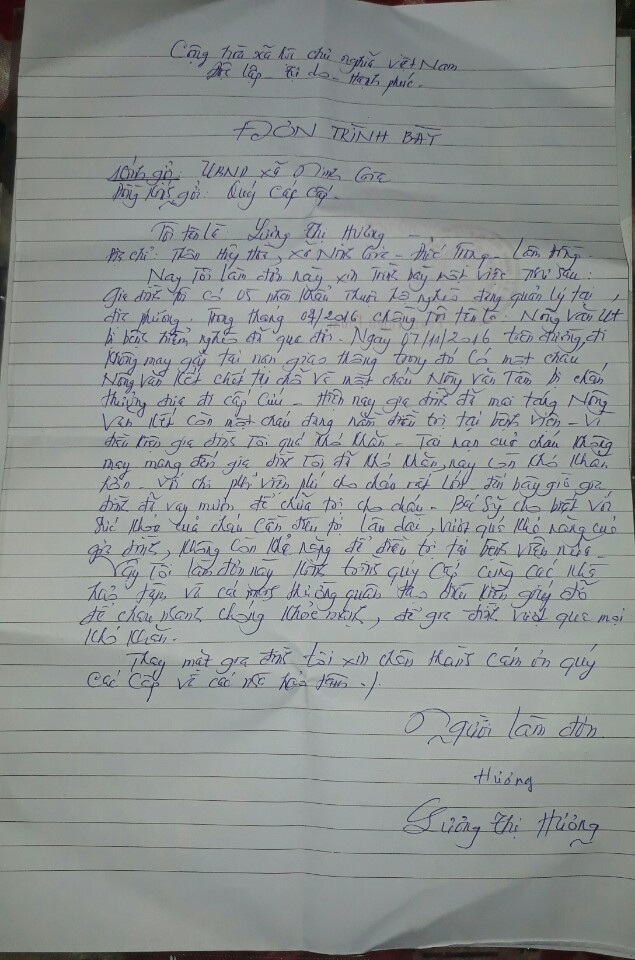 Cộng hòa xã hội chủ nghĩa việt Nam
Độc lập - Tự do - Hạnh phúc.
ĐƠN TRÌNH BÀY
Kính gởi: UBND xã Ninh Gia
Đồng kính gởi: Quý Các Cấp.
Tôi tên là Lương Thị Hường
Địa chỉ: Thôn Hiệp Hòa, xã Ninh Gia - Đức Trọng - Lâm Đồng.
Nay Tôi làm đơn này xin Trình bày một việc như sau:
Gia đình tôi có 05 nhân khẩu thuộc hộ nghèo đang quản lý tại
địa phương. Trong tháng 04/2016 chồng Tôi tên là: Nông Văn Út
bị bệnh hiểm nghèo đã qua đời. Ngày 07/11/2016 trên đường đi
không may gây tai nạn giao thông trong đó có một cháu
Nông Văn Kết chết tại chỗ và một cháu Nông Văn Tâm bị chấn
thương đưa đi cấp cứu - Hiện nay gia đình đã mai táng Nông
Văn Kết còn một cháu đang nằm điều trị tại bệnh viện - Vì
điều kiện gia đình Tôi quá khó khăn - Tai nạn của cháu không
may mang đến gia đình Tôi đã khó khăn, nay còn khó khăn
hơn - Vì chi phí viện phí cho cháu rất lớn - đến bây giờ gia
đình đã vay mượn để chữa trị cho cháu - Bác Sỹ cho biết với
sức khỏe của cháu cần điều trị lâu dài, vượt quá khả năng của
gia đình, không còn khả năng để điều trị tại bệnh viện nữa -
Vậy Tôi làm đơn này kính mong quý cấp cùng các nhà
hảo tâm và các mạnh thường quân tạo điều kiện giúp đỡ
để cháu nhanh chóng khỏe mạnh, để gia đình vượt qua mọi
khó khăn.
Thay mặt gia đình tôi xin chân thành cảm ơn quý
các cấp và các nhà hảo tâm ./.
Người làm đơn
Hường
Lương Thị Hường